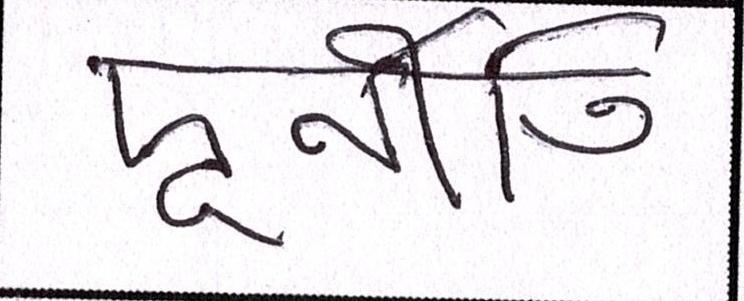 দূর্নীতি